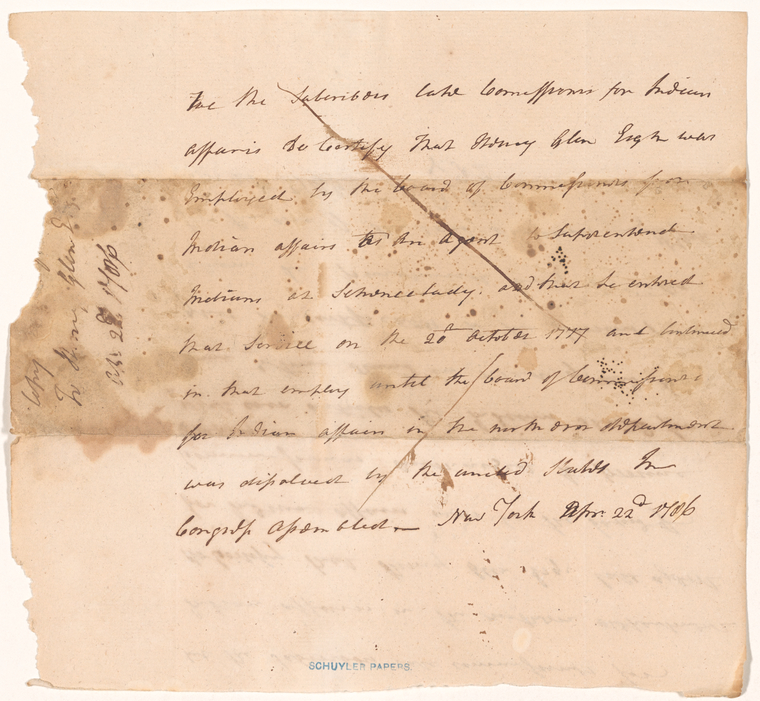 We the Subscribers late Comissioners for Indian
affairs Do Certify that Henry Glen Esqr was
Employed by the board of Commissioners for
Indian affairs as An Agent to Superentend
Indians at Schenectady. and that he entered
that Service on the 20th October 1777 and Continued
in that employ until the board of Commissioners
for Indian affairs in the northeren department
was disolved by the united States In
Congress Assembled New York Apr. 22d 1786
Copy
To Henry Glen E
Apr 22d 1786
SCHUYLER PAPERS